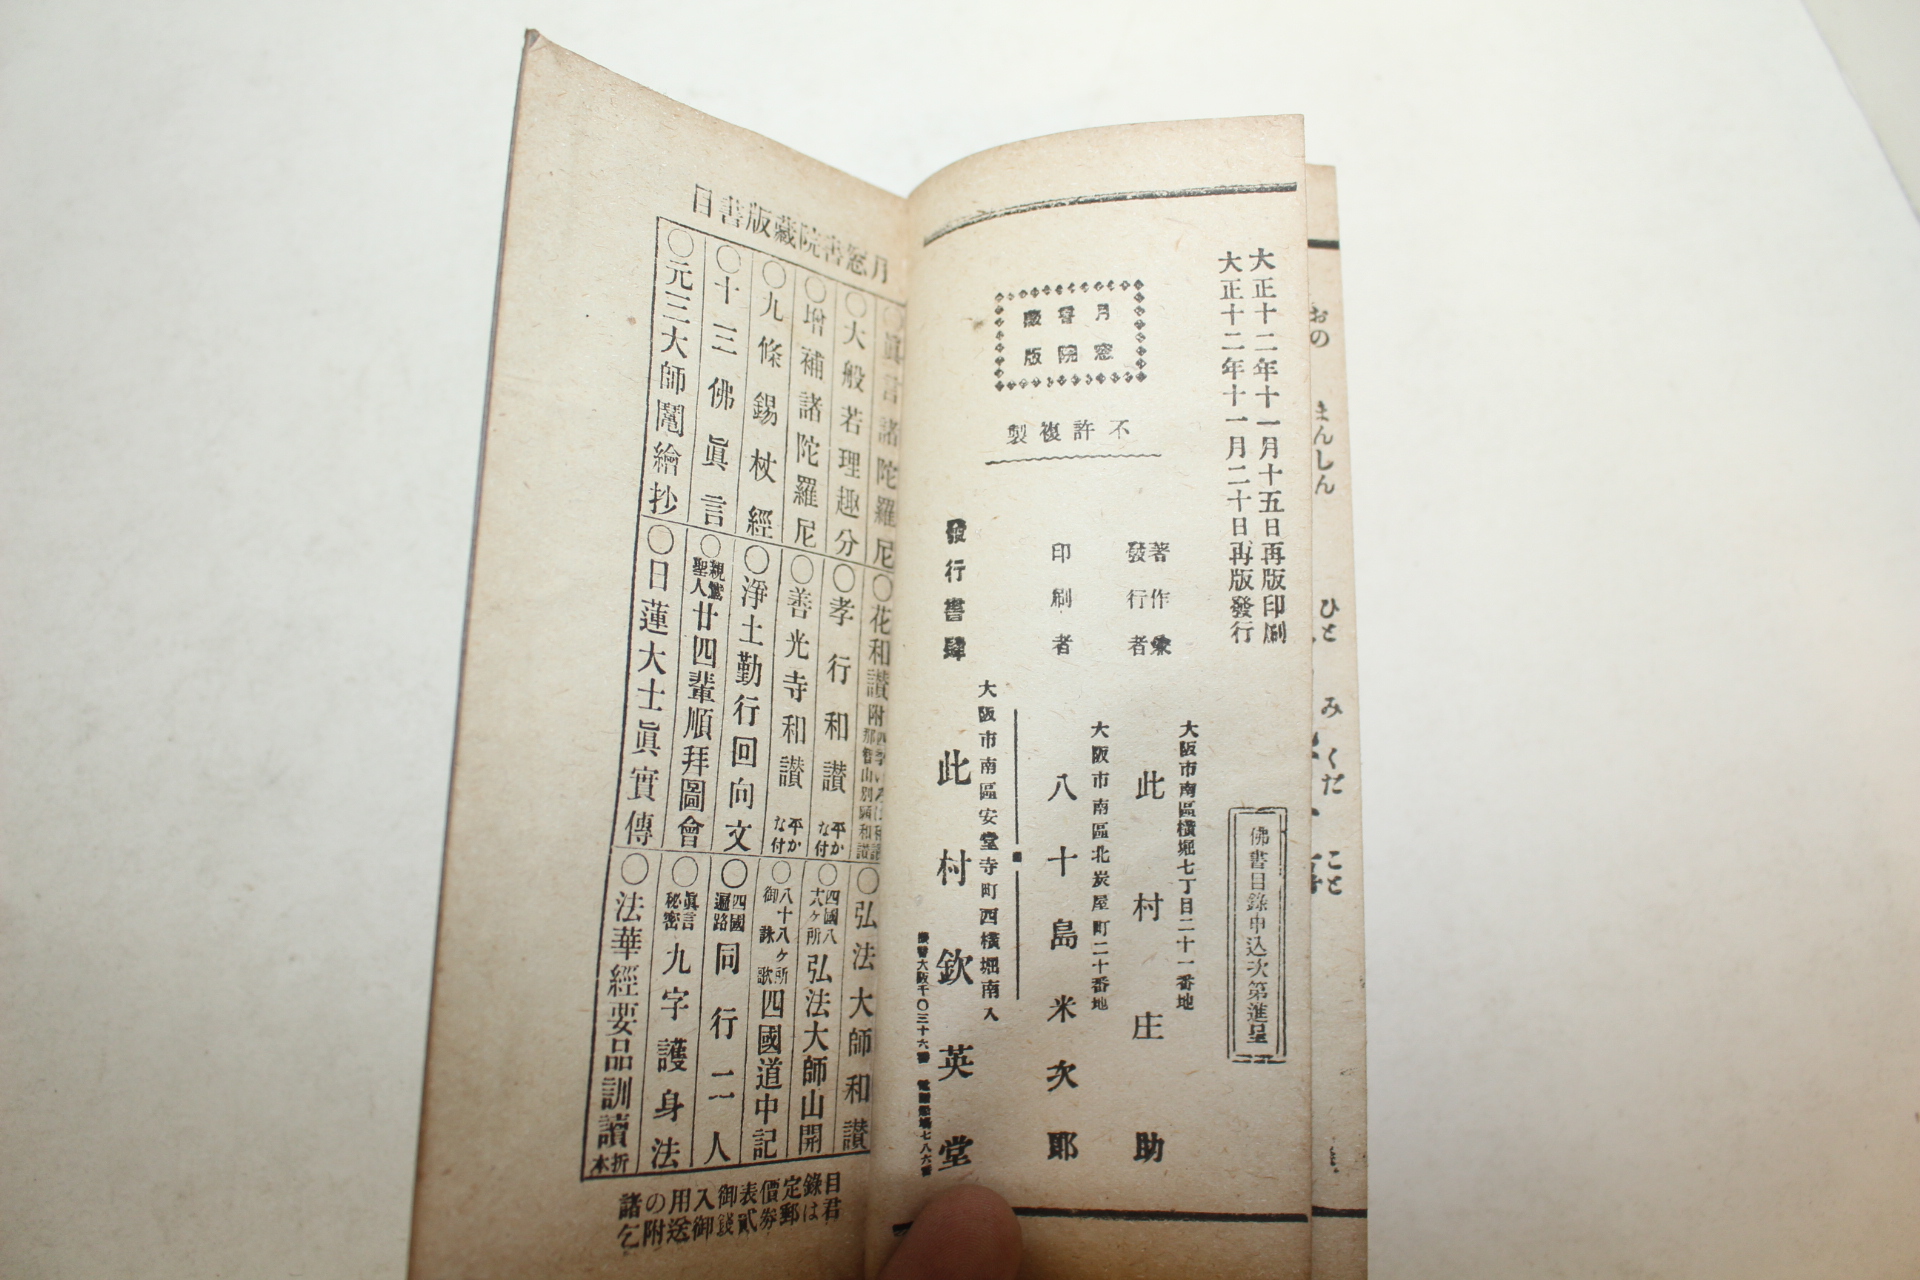 大正十二年十一月十五日再版印刷
大正十二年十一月二十日再版發行
佛書目錄申込次第進呈
月窓
書院
藏版
不許複製
著作兼
發行者
大阪市南區橫堀七丁目二十一番地
此村庄助
印刷者
大阪市南區北炭屋町二十番地
八十島米次郎
發行書肆
大阪市南區安堂寺町西橫堀南入
此村欽英堂
月窓書院藏版書目
○眞言諸陀羅尼
○大般若理趣分
○增補諸陀羅尼
○九條錫杖經
○十三佛眞言
○元三大師鬮繪抄
○花和讃
○孝行和讃 平かな付
○善光寺和讃 平かな付
○淨土勤行回向文
○親鸞聖人廿四輩順拜圖會
○日蓮大士眞實傳
○弘法大師和讃
○四國八十八ヶ所弘法大師山開
○八十八ヶ所御詠歌四國道中記
○四國遍路同行二人
○眞言秘密九字護身法
○法華經要品訓讀 折本
目君
錄は
定郵
價券
表貳
御錢
入御
用送
の附
諸乞
おの
まんしん
ひと
みくだ
こと